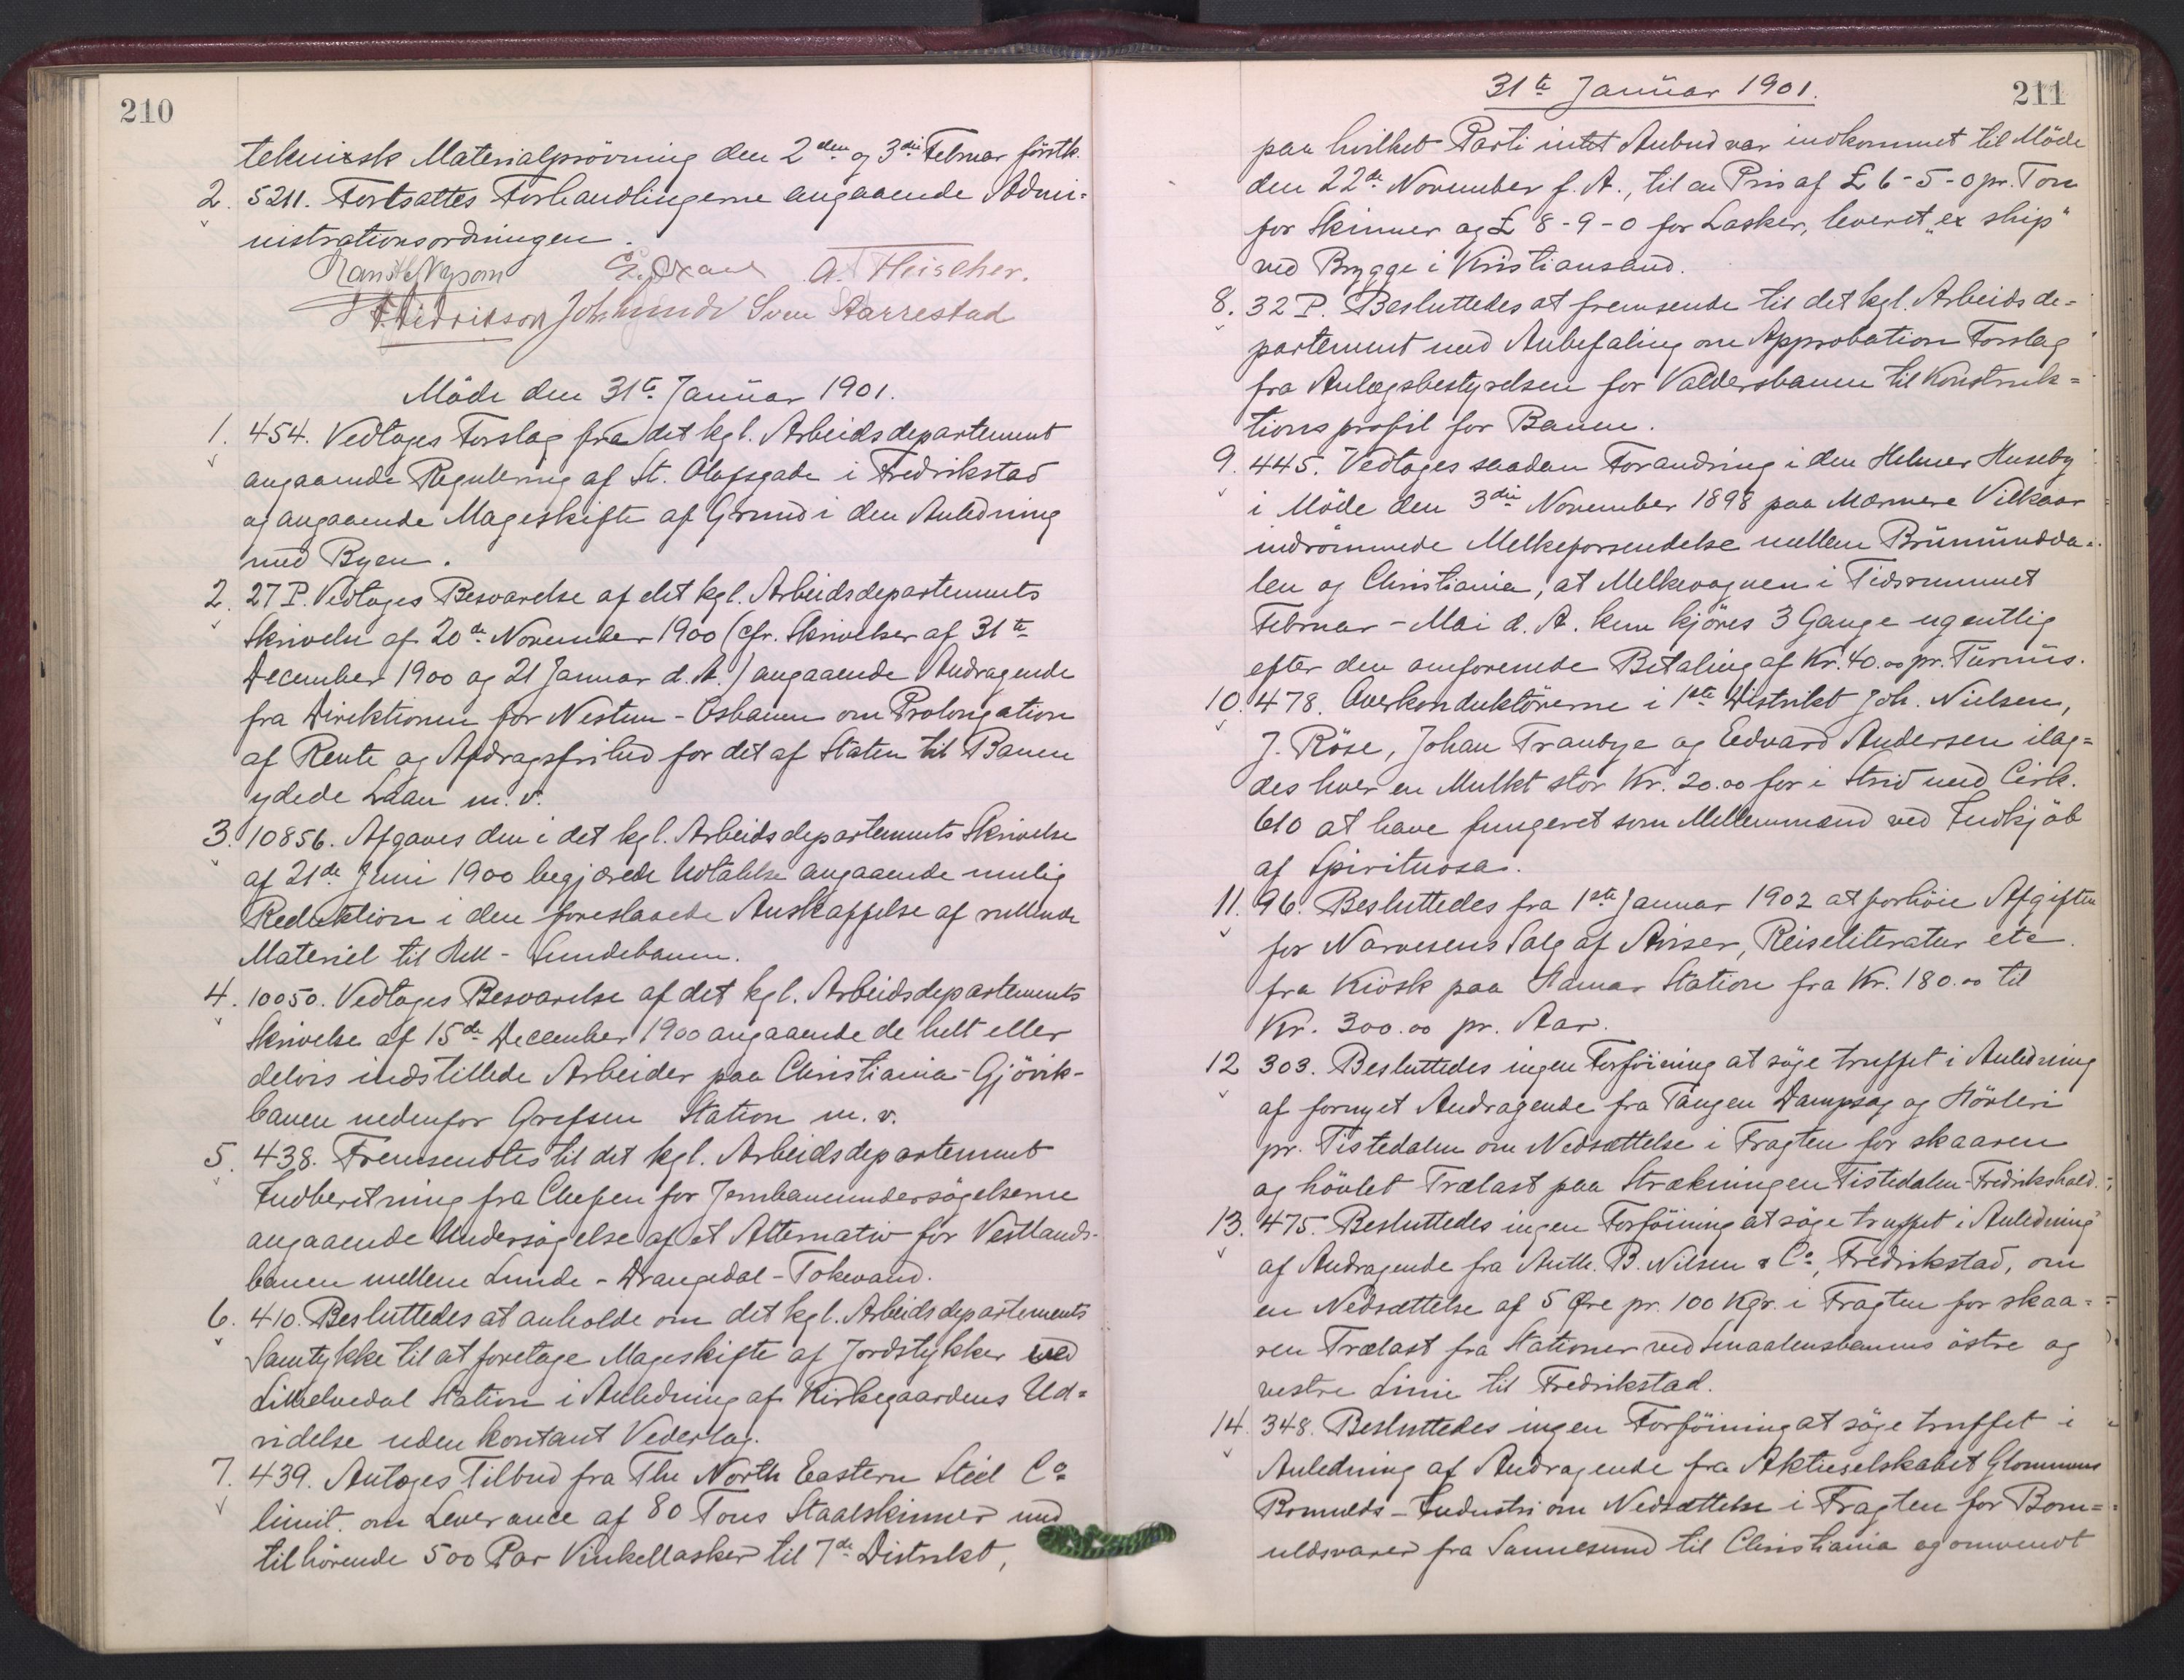 210
teknisk Materialprövning den 2den og 3die Februar förstk.
2. 5211. Fortsattes Forhandlingerne angaaende Admi=
nistrationsordningen.
A. Fleischer.
H. Didrikson Joh. Sven Aarrestad
Möde den 31te Januar 1901.
1. 454. Vedtoges Forslag fra det kgl. Arbeidsdepartement
angaaende Regulering af St. Olafsgade i Fredrikstad
og angaaende Mageskifte af Grund i den Anledning
med Byen.
2. 27 P. Vedtoges Besvarelse af det kgl. Arbeidsdepartements
Skrivelse af 20de November 1900 (cfr. Skrivelser af 31te
December 1900 og 21 Januar d. A.) angaaende Andragende
fra Direktionen for Nestun-Osbanen om Prolongation
af Rente og Afdragsfrihed for det af Staten til Banen
ydede Laan m. v.
3. 10856. Afgaves den i det kgl. Arbeidsdepartements Skrivelse
af 21de Juni 1900 begjærede Udtalelse angaaende mulig
Reduktion i den foreslaaede Anskaffelse af rullende
Materiel til Hell-Sundebanen.
4. 10050. Vedtoges Besvarelse af det kgl. Arbeidsdepartements
Skrivelse af 15de December 1900 angaaende de helt eller
delvis indstillede Arbeider paa Christiania-Gjövik-
banen nedenfor Grefsen Station m. v.
5. 438. Fremsendtes til det kgl. Arbeidsdepartement
Indberetning fra Chefen for Jernbaneundersögelserne
angaaende Undersögelse af et Alternativ for Vestlands-
banen mellem Lunde-Drangedal-Tokevand.
6. 410. Besluttedes at anholde om det kgl. Arbeidsdepartements
Samtykke til at foretage Mageskifte af Jordstykker ved
Lilleelvedal Station i Anledning af Kirkegaardens Ud=
videlse uden kontant Vederlag.
7. 439. Antoges Tilbud fra The North Eastern Steel Co
limit. om Leverance af 80 Tons Staalskinner med
tilhörende 500 Par Vinkellasker til 7de Distrikt,
31te Januar 1901.
211
paa hvilket Parti intet Anbud var indkommet til Möde
den 22de November f. A., til en Pris af £ 6-5-0 pr. Ton
for Skinner og £ 8-9-0 for Lasker, leveret „ex ship"
ved Brygge i Kristiansand.
8. 32 P. Besluttedes at fremsende til det kgl. Arbeidsde=
partement med Anbefaling om Approbation Forslag
fra Anlægsbestyrelsen for Valdersbanen til Konstruk=
tionsprofil for Banen.
9. 445. Vedtoges saadan Forandring i den Helmer Huseby
i Möde den 3die November 1898 paa nærmere Vilkaar
indrömmede Melkeforsendelse mellem Brumundda=
len og Christiania, at Melkevognen i Tidsrummet
Februar-Mai d. A. kun kjöres 3 Gange ugentlig
efter den omforenede Betaling af Kr. 40.00 pr. Turnus.
10. 478. Overkonduktörerne i 1ste Distrikt Joh. Nielsen,
J. Röse, Johan Tranbye og Edvard Andersen ilag=
des hver en Mulkt stor Kr. 20.00 for i Strid med Cirk.
610 at have fungeret som Mellemmænd ved Indkjöb
af Spirituosa.
11. 96. Besluttedes fra 1ste Januar 1902 at forhöie Afgiften
for Narvesens Salg af Aviser, Reiseliteratur etc.
fra Kiosk paa Hamar Station fra Kr. 180.00 til
Kr. 300.00 pr. Aar.
12 303. Besluttedes ingen Forföining at söge truffet i Anledning
af fornyet Andragende fra Tangen Dampsag og Hövleri
pr. Tistedalen om Nedsættelse i Fragten for skaaren
og hövlet Trælast paa Strækningen Tistedalen-Fredrikshald.
13. 475. Besluttedes ingen Forföining at söge truffet i Anledning
af Andragende fra Anth. B. Nilsen & Co, Fredrikstad, om
en Nedsættelse af 5 Øre pr. 100 Kgr. i Fragten for skaa=
ren Trælast fra Stationer ved Smaalensbanens östre og
vestre Linie til Fredrikstad.
14. 348. Besluttedes ingen Forföining at söge truffet i
Anledning af Andragende fra Aktieselskabet Glommens
Bomulds-Industri om Nedsættelse i Fragten for Bom=
uldsvarer fra Sannesund til Christiania og omvendt